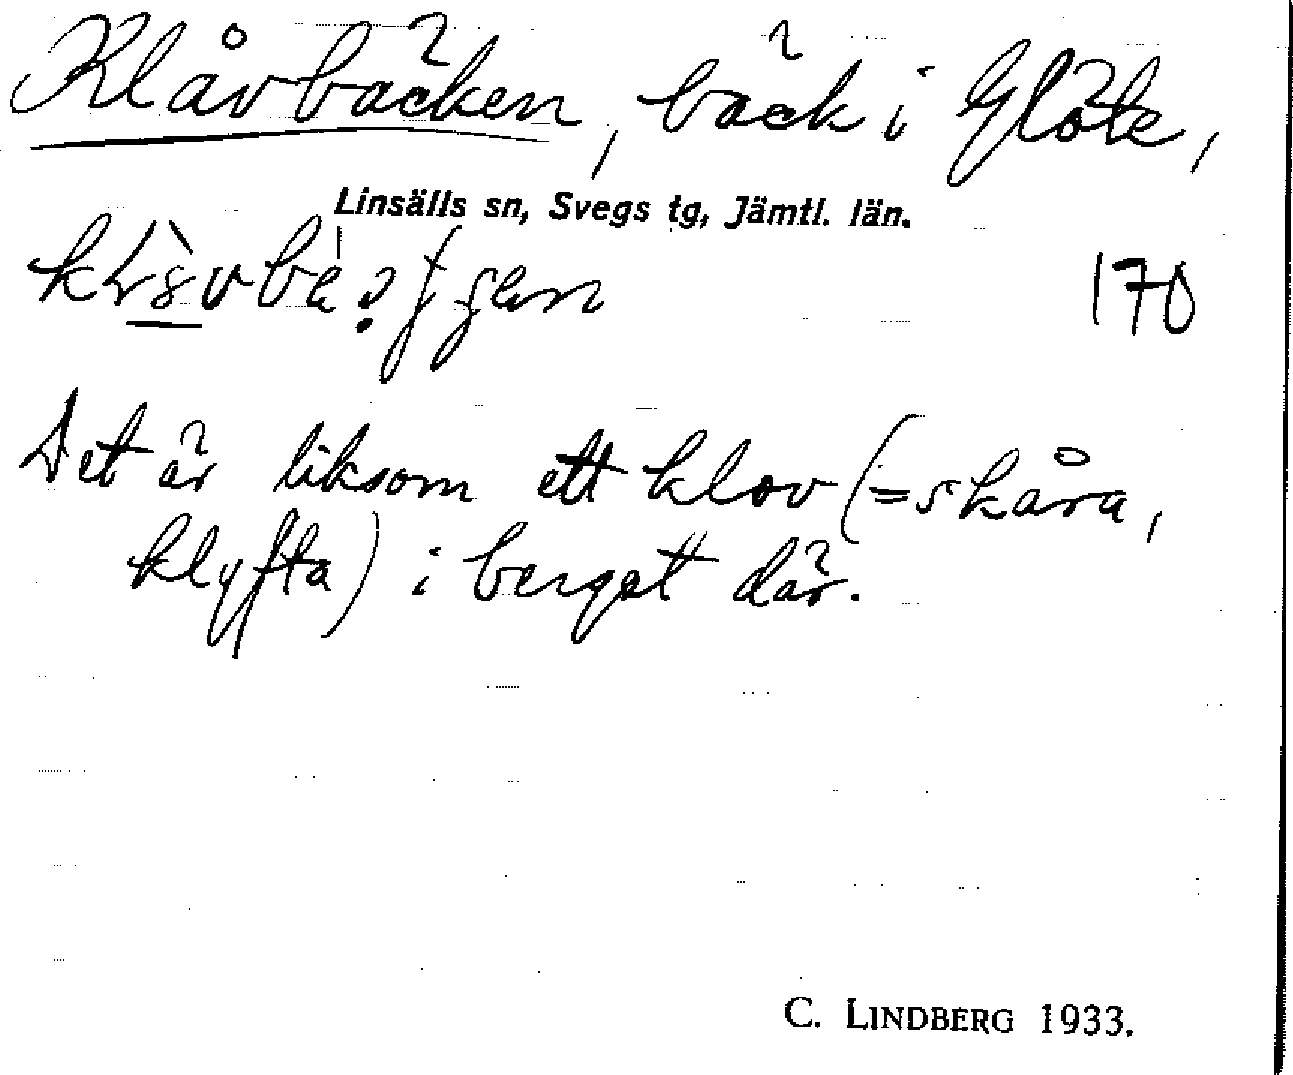 Klåvbäcken, bäck i Glöte,
Linsälls sn, Svegs tg, Jämtl. län.
170
Det är liksom ett klov (=skåra,
klyfta) i berget där.
C. LINDBERG 1933.